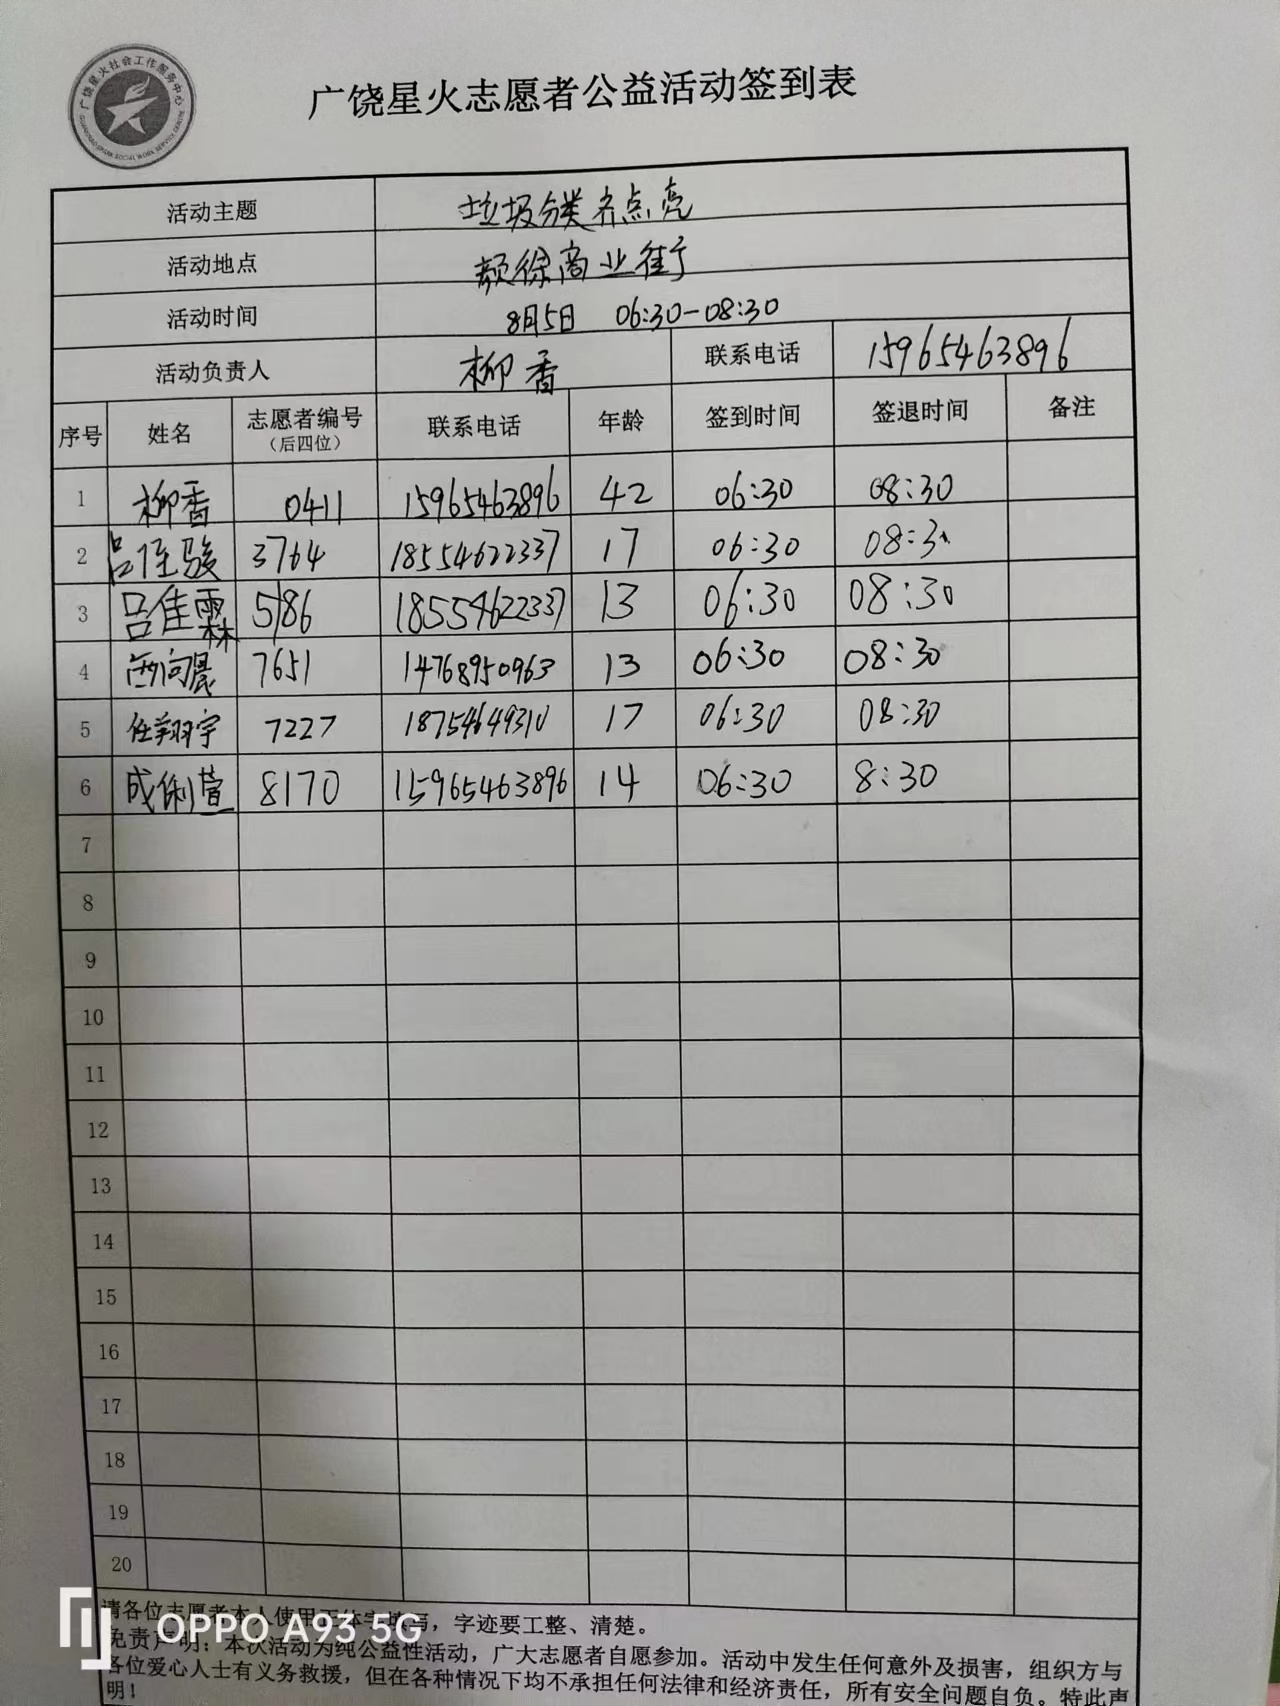 广饶星火社会工作服务中心
广饶星火志愿者公益活动签到表
活动主题 垃圾分类齐点亮
活动地点 颜徐商业街
活动时间 8月5日 06:30-08:30
活动负责人 柳香 联系电话 15965463896
序号 姓名 志愿者编号 联系电话 年龄 签到时间 签退时间 备注
（后四位）
1 柳香 0411 15965463896 42 06:30 08:30
2 吕任骏 3764 18554622337 17 06:30 08:3
3 吕佳霖 5186 18554622337 13 06:30 08:30
4 7651 14768950963 13 06:30 08:30
5 任翔宇 7227 18754649310 17 06:30 08:30
6 成俐萱 8170 15965463896 14 06:30 8:30
7
8
9
10
11
12
13
14
15
16
17
18
19
20
请各位志愿者本人使用正体字填写，字迹要工整、清楚。
免责声明：本次活动为纯公益性活动，广大志愿者自愿参加。活动中发生任何意外及损害，组织方与
各位爱心人士有义务救援，但在各种情况下均不承担任何法律和经济责任，所有安全问题自负。特此声
明！
OPPO A93 5G